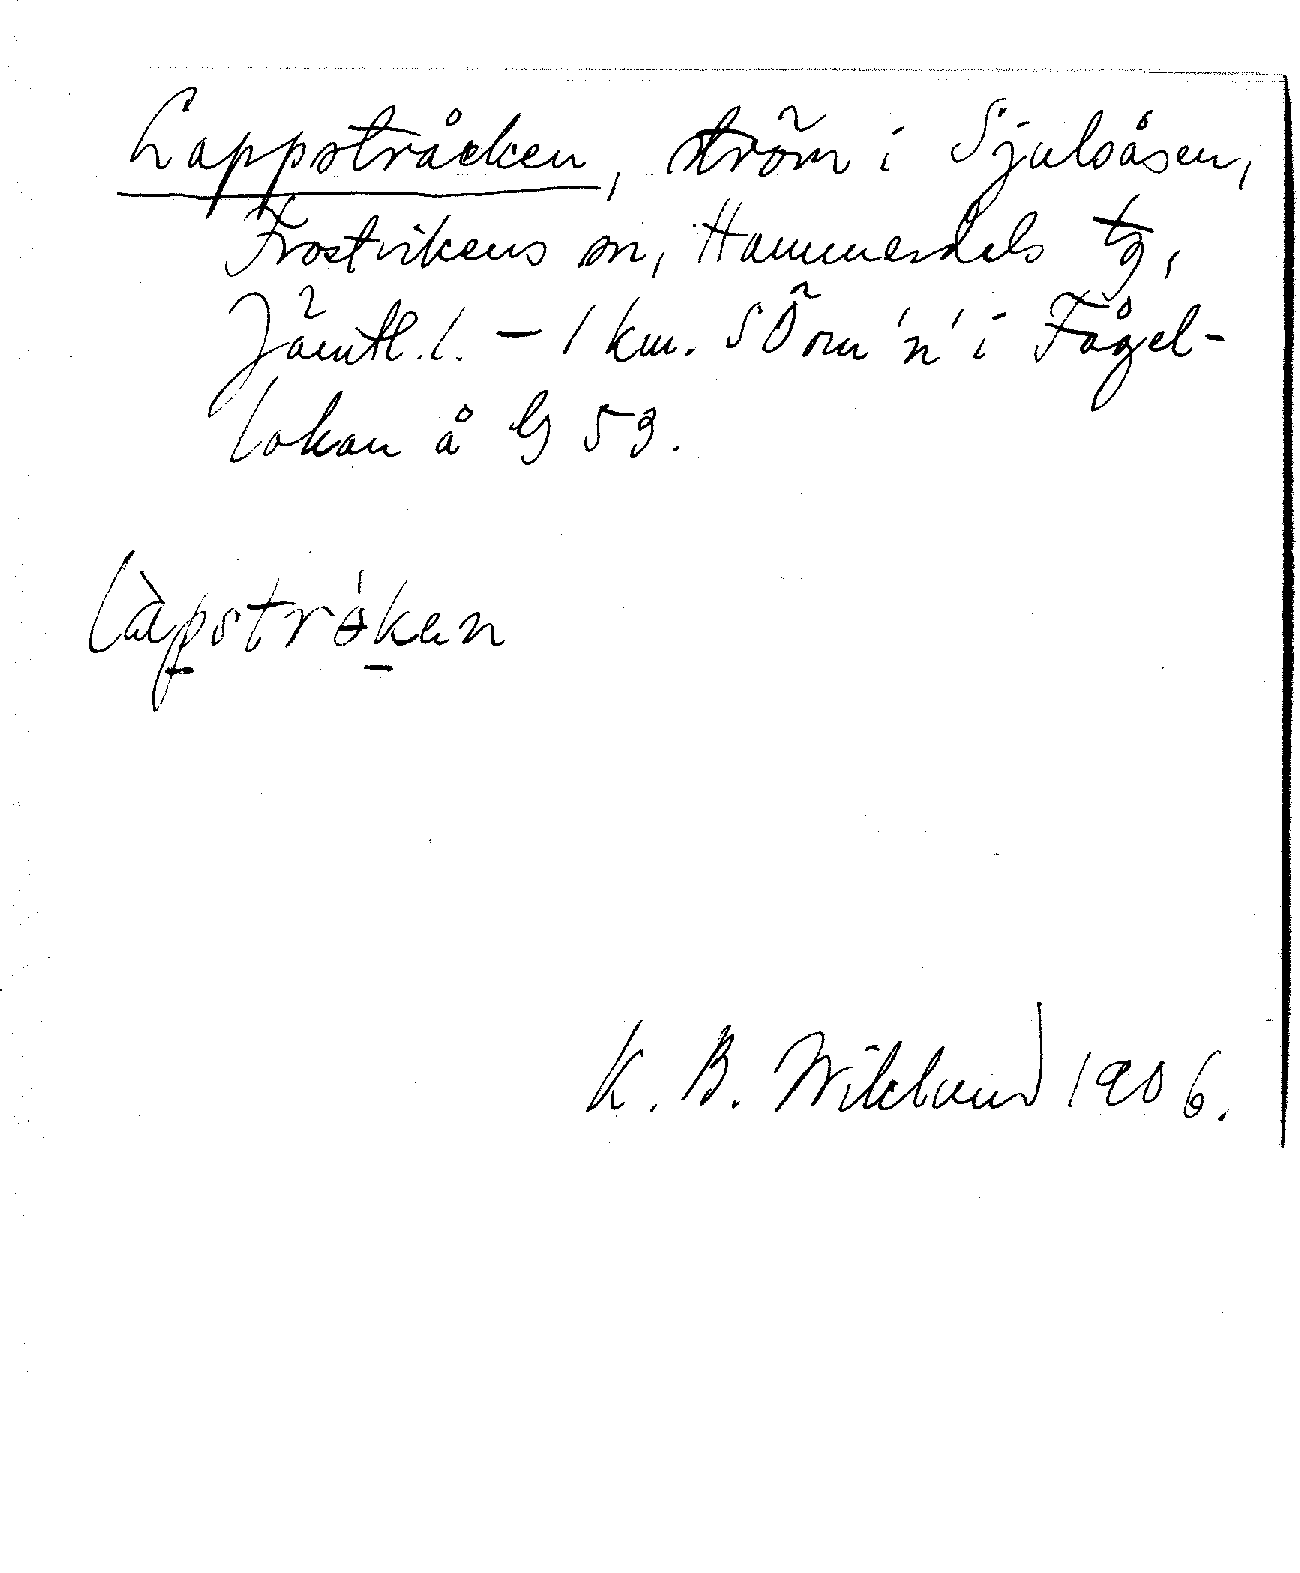 Lappstråcken, ström i Sjulsåsen,
Frostvikens sn, Hammerdals tg,
Jämtl. l. – 1 km. SÖ om 'n' i Fågel-
lokan å G 53.
làpstrókan
K. B. Wiklund 1906.